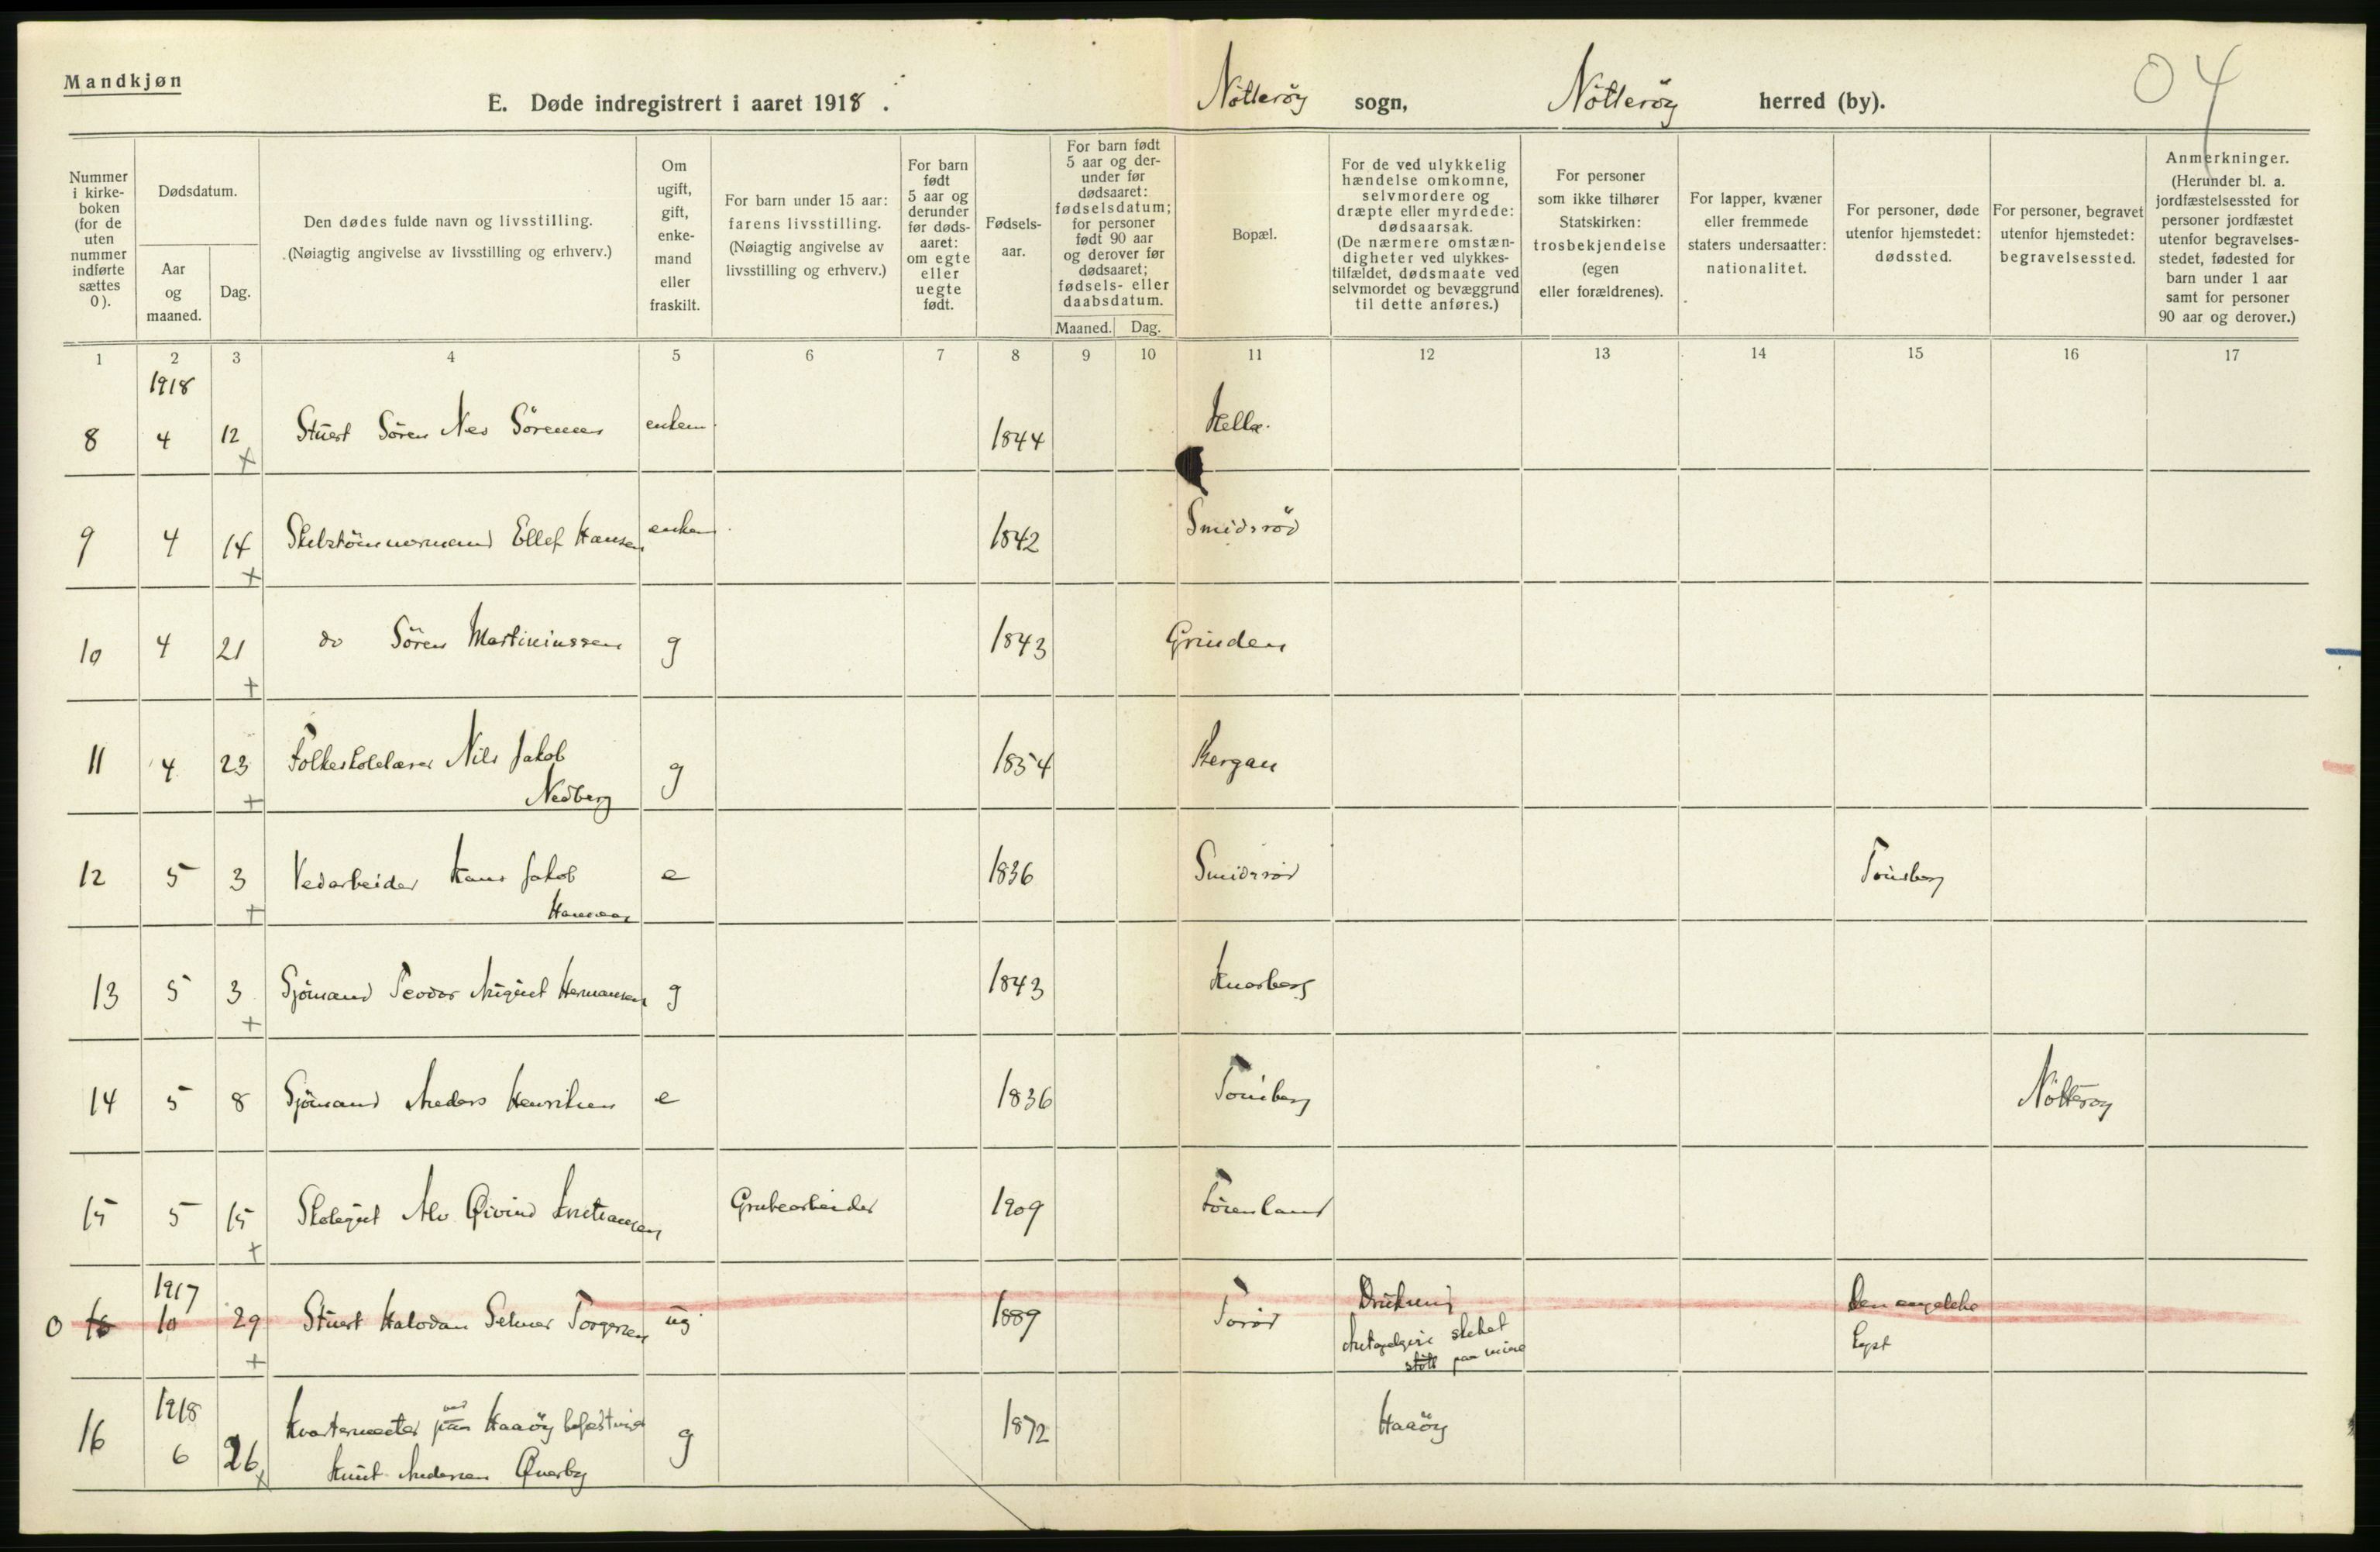 Mandkjøn
04
E. Døde indregistrert i aaret 1918.
Nötteröy sogn, Nötteröy herred (by).
Nummer i kirke-boken (for de uten nummer indførte sættes 0).
Dødsdatum.
Aar og maaned.
Dag.
Den dødes fulde navn og livsstilling.
(Nøiagtig angivelse av livsstilling og erhverv.)
Om ugift, gift, enke-mand eller fraskilt.
For barn under 15 aar: farens livsstilling.
(Nøiagtig angivelse av livsstilling og erhverv.)
For barn født 5 aar og derunder før døds-aaret: om egte eller uegte født.
Fødsels-aar.
For barn født 5 aar og der-under før dødsaaret: fødselsdatum; for personer født 90 aar og derover før dødsaaret; fødsels- eller daabsdatum.
Maaned. Dag.
Bopæl.
For de ved ulykkelig hændelse omkomne, selvmordere og dræpte eller myrdede: dødsaarsak.
(De nærmere omstæn-digheter ved ulykkes-tilfældet, dødsmaate ved selvmordet og bevæggrund til dette anføres.)
For personer som ikke tilhører Statskirken: trosbekjendelse (egen eller forældrenes).
For lapper, kvæner eller fremmede staters undersaatter: nationalitet.
For personer, døde utenfor hjemstedet: dødssted.
For personer, begravet utenfor hjemstedet: begravelsessted.
Anmerkninger.
(Herunder bl. a. jordfæstelsessted for personer jordfæstet utenfor begravelses-stedet, fødested for barn under 1 aar samt for personer 90 aar og derover.)
1 2 3 4 5 6 7 8 9 10 11 12 13 14 15 16 17
1918
8 4 12 Stuert Sören Nes Sörensen enkem. 1844 Hella.
9 4 14 Skibstömmermand Ellef Hansen enkem 1842 Smidsröd
10 4 21 do Sören Martiniussen g 1843 Grinden
11 4 23 Folkeskolelærer Nils Jakob Nedberg g 1854 Bergan
12 5 3 Vedarbeider Hans Jakob Hansen e 1836 Smidsröd Tönsberg
13 5 3 Sjömand Teodor August Hermansen g 1843 Knarberg
14 5 8 Sjömand Anders Henriksen e 1836 Tönsberg Nötteröy
15 5 15 Skolegut Alv Øivind Kristiansen Grubearbeider 1909 Föienland
1917
0 16 10 29 Stuert Halvdan Selmer Torgersen ug 1889 Toröd Drukning
Antagelgvis skibet stött paa mine
Den engelske kyst
1918
16 6 26 Kvartermester paa ved Haaöy befæstning
Knut Andersen Qverby g 1872 Haaöy